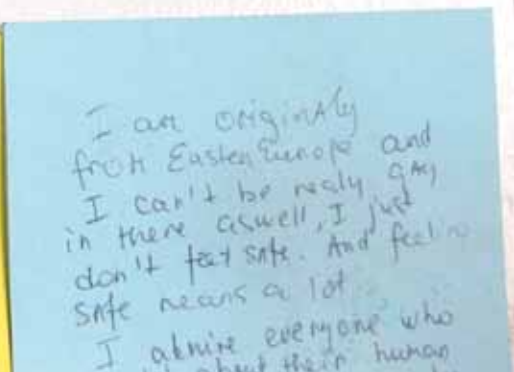 I am originaly
from Easten Europe and
I can't be realy gay
in there aswell, I just
don't feel safe. And feeling
safe means a lot.
I admire everyone who
about their human